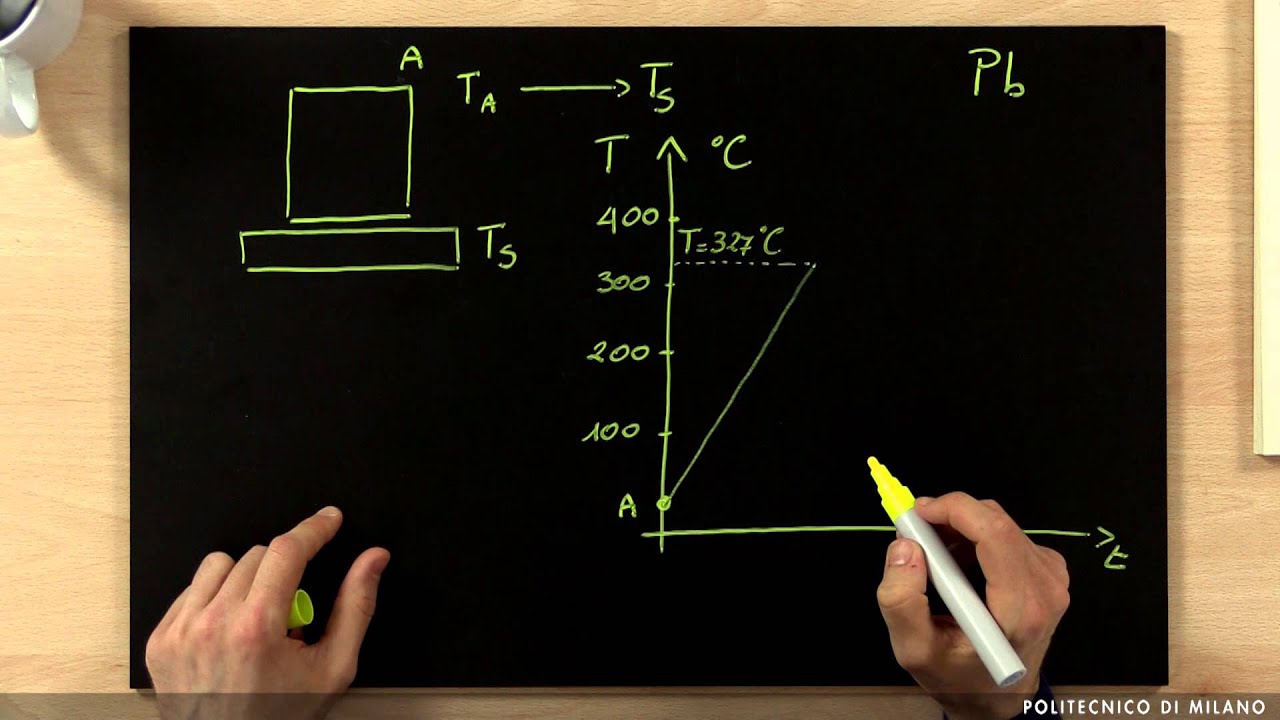 A
T_A → T_S
Pb
T °C
400
T=327°C
T_S
300
200
100
A
t
POLITECNICO DI MILANO